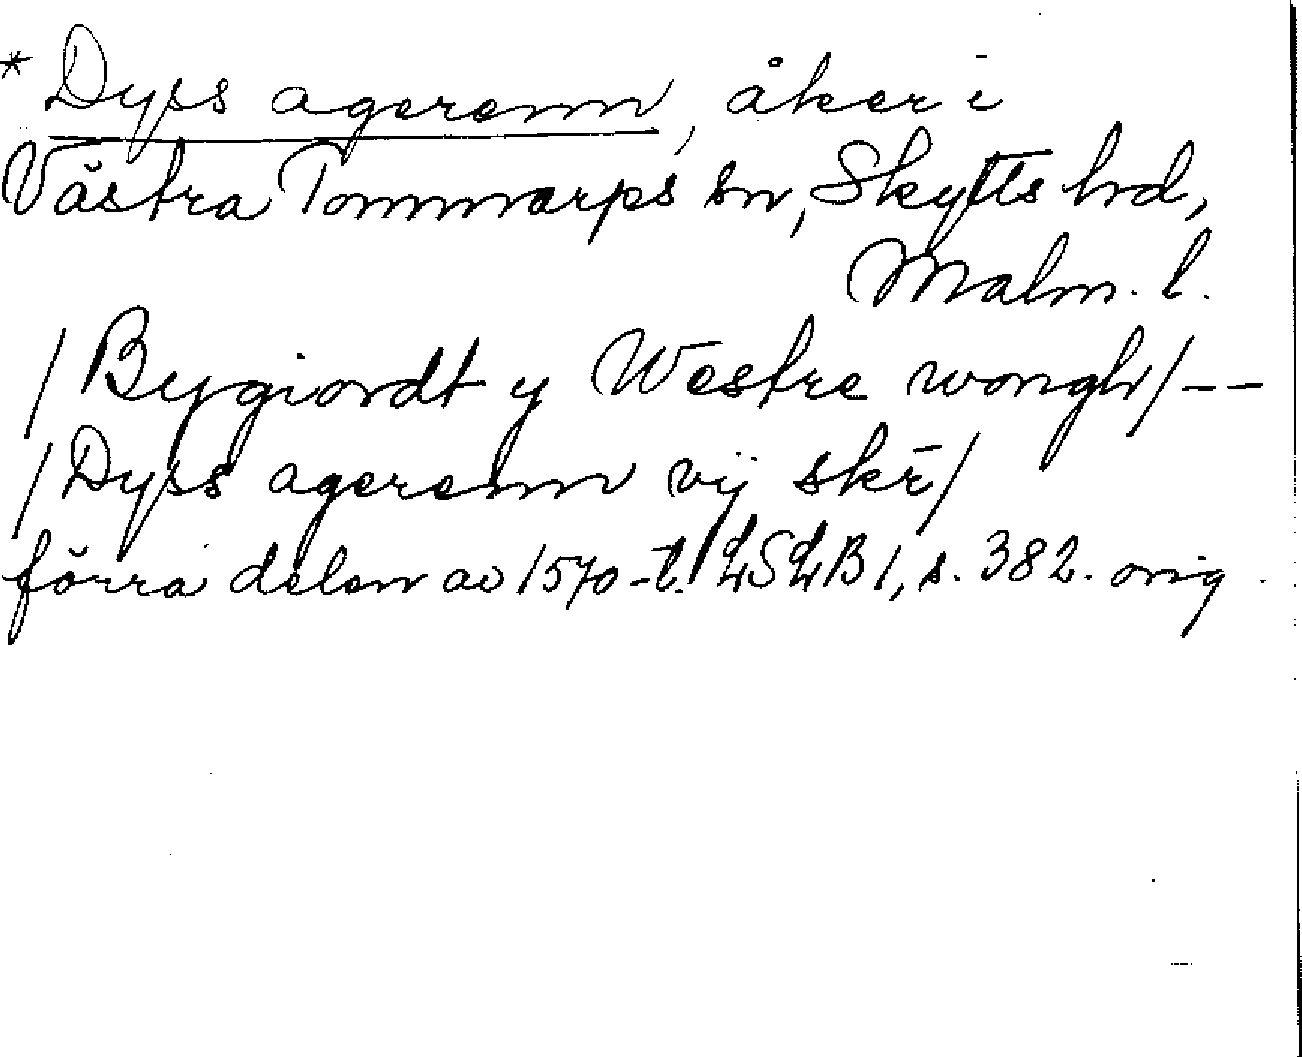 * Dyss agerenn, åker i
Västra Tommarps sn, Skytts hd,
Malm. l.
/Bygiordt y Westre wongh/--
/Dyss agerenn vij skē/
förra delen av 1570-t. LSLB 1, s. 382. orig.